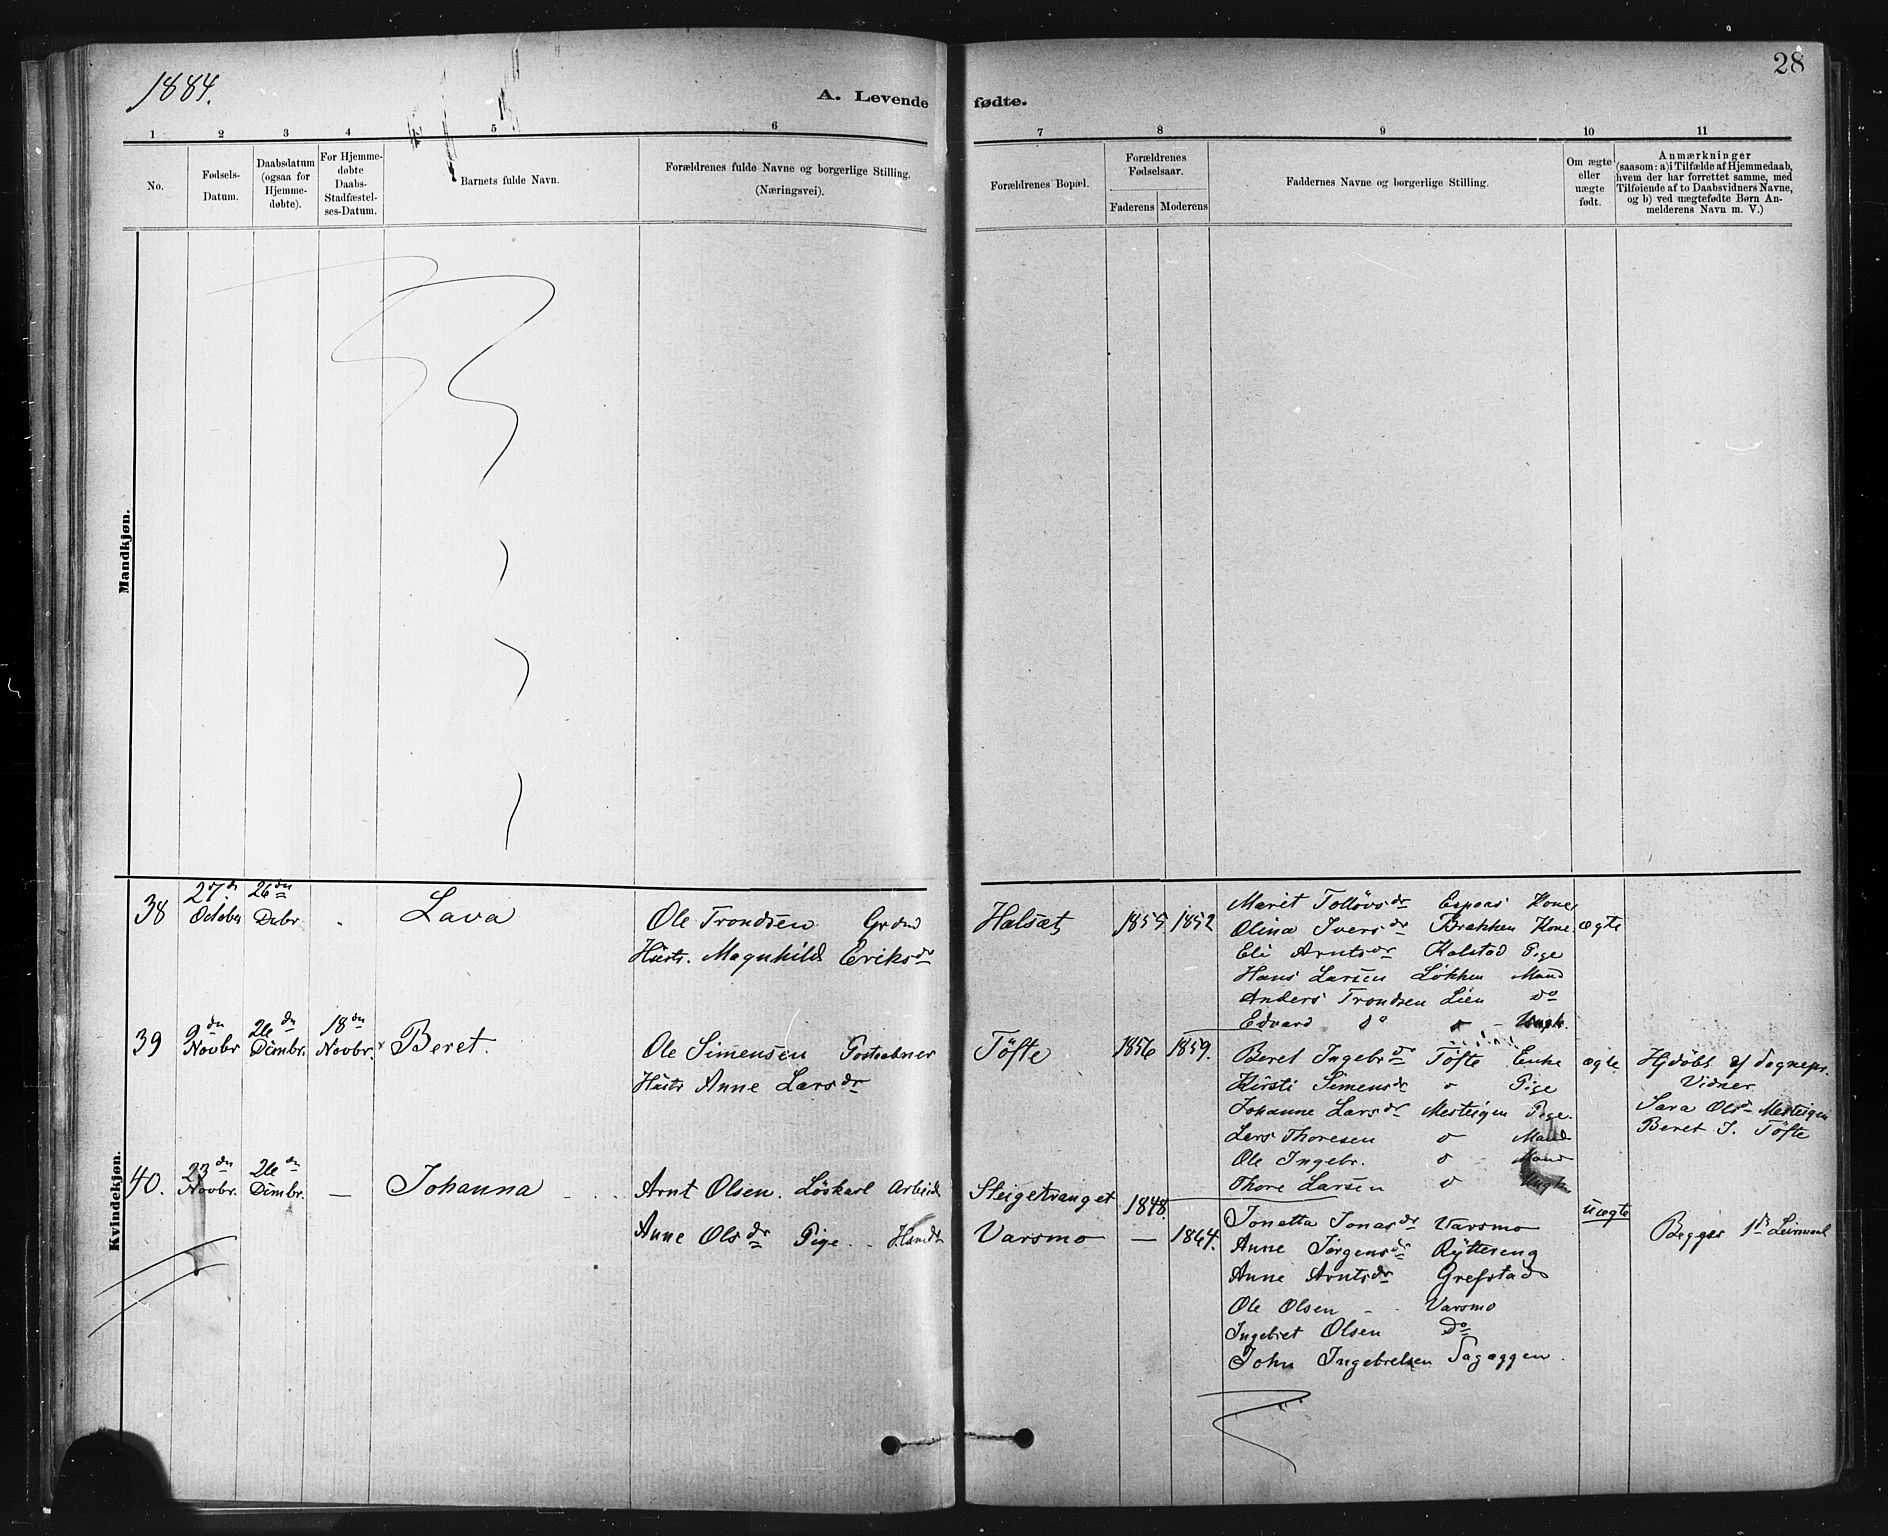 1884.
28
A. Levende fødte.
1 2 3 4 5 6 7 8 9 10 11
No.
Fødsels-
Datum.
Daabsdatum
(ogsaa for
Hjemme-
døbte).
For Hjemme-
døbte
Daabs-
Stadfæstel-
ses-Datum.
Barnets fulde Navn.
Forældrenes fulde Navne og borgerlige Stilling.
(Næringsvei).
Forældrenes Bopæl.
Forældrenes
Fødselsaar.
Faderens Moderens
Faddernes Navne og borgerlige Stilling.
Om ægte
eller
uægte
født.
Anmærkninger
(saasom: a) i Tilfælde af Hjemmedaab,
hvem der har forrettet samme, med
Tilføiende af to Daabsvidners Navne,
og b) ved uægtefødte Børn An-
melderens Navn m. V.)
Mandkjøn.
Kvindekjøn.
38
27de October
26dn Decbr
Lava
Ole Trondsen Grdm
Hustr. Magnhild Eriksdr
Halsæt
1855 1852
Marit Tolløvsdr Espaas Kone
Olina Iversdr Brækken Kone
Eli Arntsdr Kalstad Pige
Hans Larsen Løkken Mand
Anders Trondsen Lien do
Edvard do " Ungk.
ægte
39
9dn Novbr
26dn Dcmbr.
18dn Novbr.
Beret.
Ole Simensen Postaabner
Hustr Anne Larsdr
Tøfte
1856 1859.
Beret Ingebrdr Tøfte Enke
Kirsti Simensdr " Pige
Johanne Larsdr Mesteigen Pige.
Lars Thoresen " Mand
Ole Ingebr. " Mand
Thore Larsen " Ungk
ægte
Hjdøbt af Sognepr.
Vidner
Sara Olsd Mesteigen
Beret S. Tøfte
40.
23dn Novbr.
26dn Dcmbr.
—
Johanna
Arnt Olsen. Løskarl Arbeid
Anne Olsdr Pige
Steigetvanget
Varsmo
1848.
— 1864.
Jonetta Jonasdr Varsmo
Anne Jørgensdr Ryttereng
Anne Arntsdr Grefstad
Ole Olsen Varsmo
Ingebret Olsen Do
John Ingebretsen Sagaggen.
uægte
Begges 1ste Leiermaal